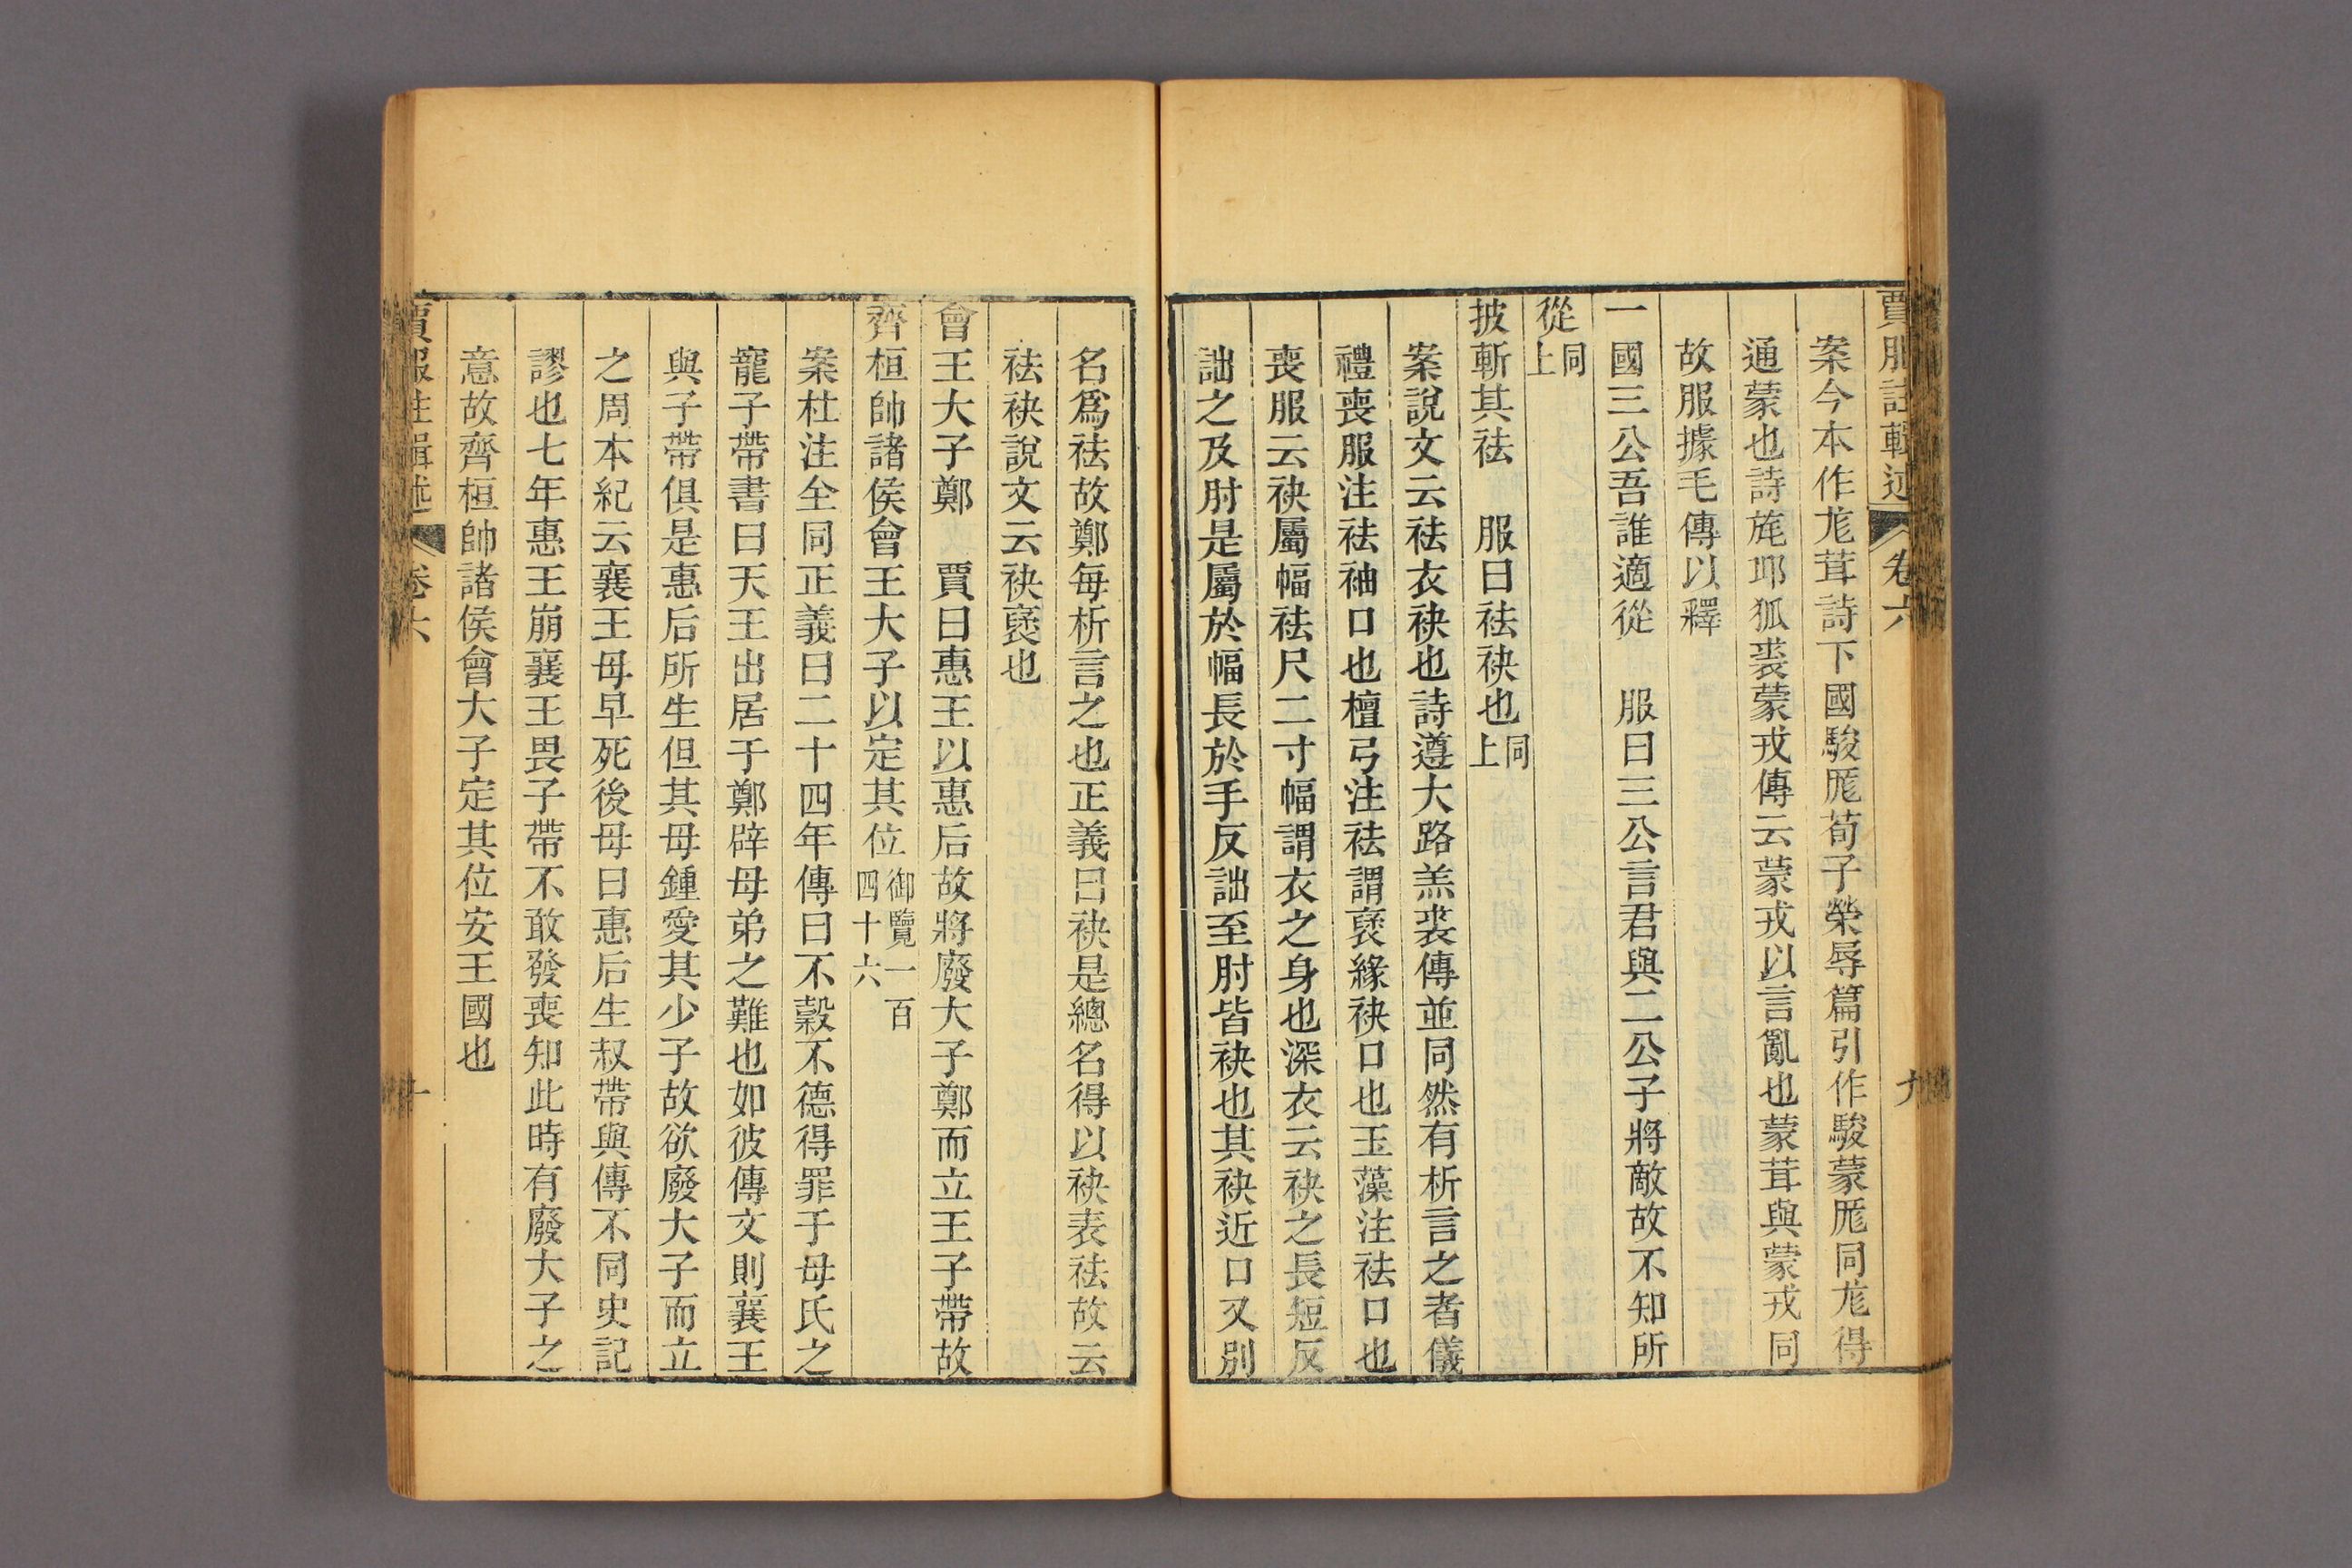 賈服註輯述 卷六 九
案今本作尨茸詩下國駿厖荀子榮辱篇引作駿蒙厖同尨得
通蒙也詩旄邱狐裘蒙戎傳云蒙戎以言亂也蒙茸與蒙戎同
故服據毛傳以釋
一國三公吾誰適從 服曰三公言君與二公子將敵故不知所
從同上
披斬其袪 服曰袪袂也同上
案說文云袪衣袂也詩遵大路羔裘傳並同然有析言之者儀
禮喪服注袪袖口也檀弓注袪謂褎緣袂口也玉藻注袪口也
喪服云袂屬幅袪尺二寸幅謂衣之身也深衣云袂之長短反
詘之及肘是屬於幅長於手反詘至肘皆袂也其袂近口又別
名爲袪故鄭每析言之也正義曰袂是總名得以袂表袪故云
袪袂說文云袂褎也
會王大子鄭 賈曰惠王以惠后故將廢大子鄭而立王子帶故
齊桓帥諸侯會王大子以定其位御覽一百四十六
案杜注全同正義曰二十四年傳曰不穀不德得罪于母氏之
寵子帶書曰天王出居于鄭辟母弟之難也如彼傳文則襄王
與子帶俱是惠后所生但其母鍾愛其少子故欲廢大子而立
之周本紀云襄王母早死後母曰惠后生叔帶與傳不同史記
謬也七年惠王崩襄王畏子帶不敢發喪知此時有廢大子之
意故齊桓帥諸侯會大子定其位安王國也
賈服註輯述 卷六 十